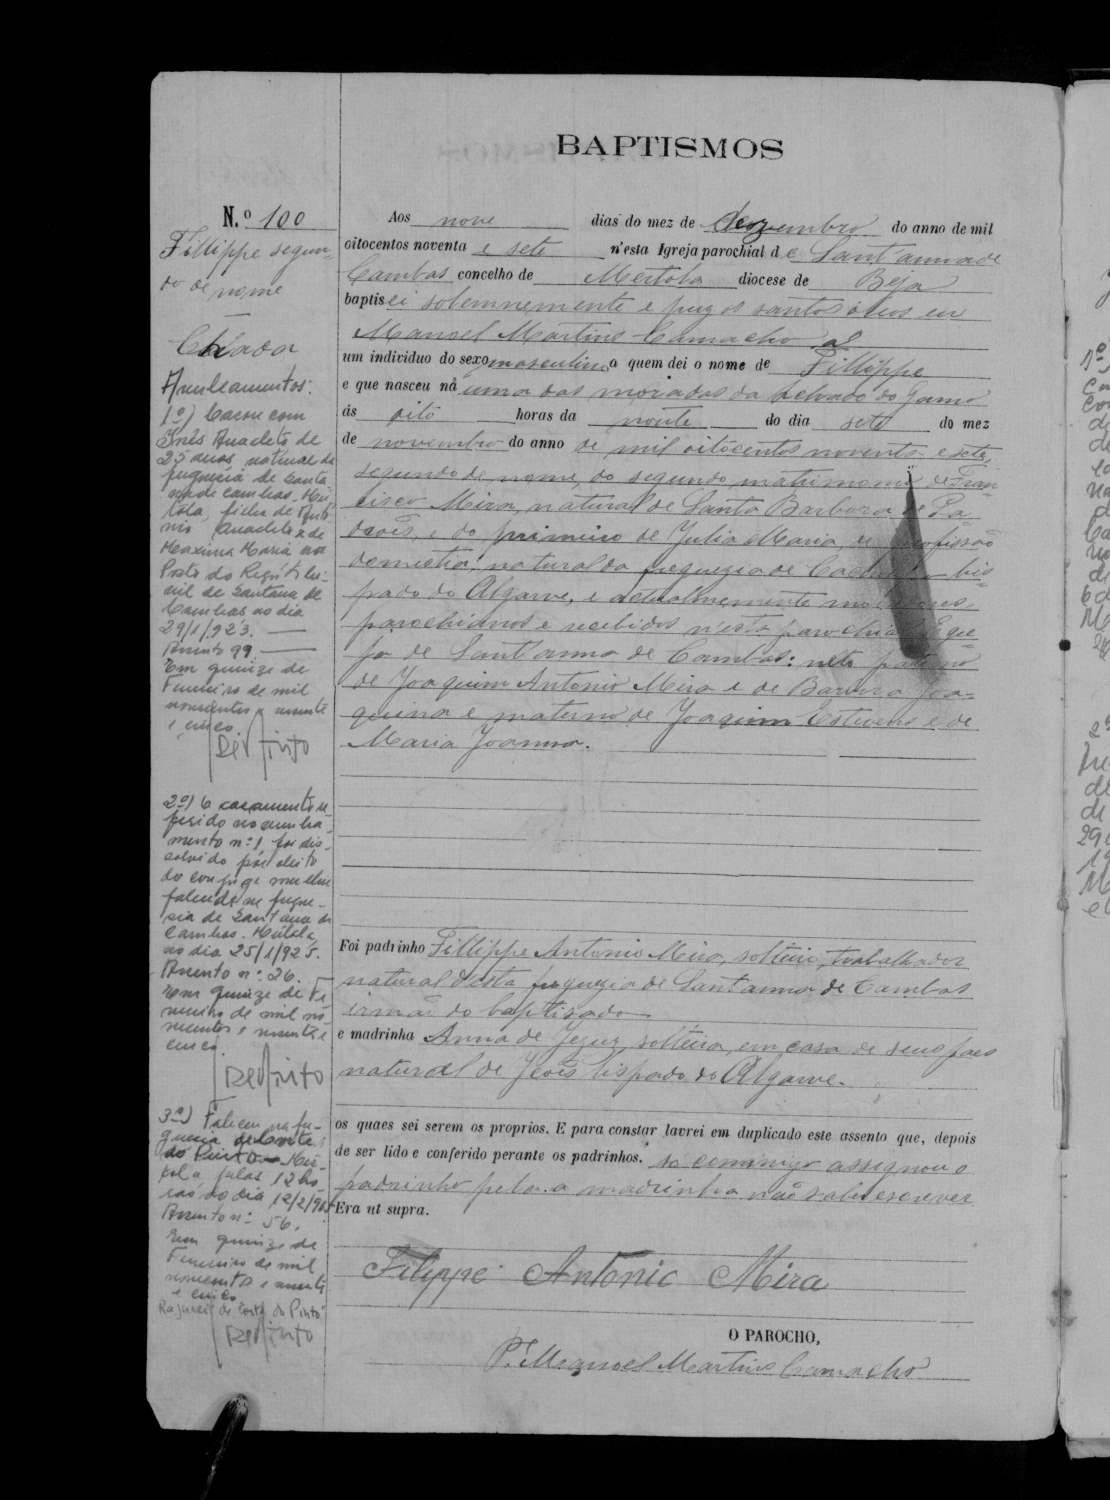 BAPTISMOS
N.º 100
Fillippe segun-
do de nome
Aos nove dias do mez de dezembro do anno de mil
oitocentos noventa e sete n'esta Igreja parochial de Sant'anna de
Cambas concelho de Mertola diocese de Beja
baptisei solemnemente e puz os santos oleos eu
Manoel Martins Camacho a
um individuo do sexo masculino a quem dei o nome de Fillippe
e que nasceu na uma das moradas da do Gamo
ás oito horas da noute do dia sete do mez
de novembro do anno de mil oitocentos noventa e sete,
segundo de nome, do segundo matrimonio de Fran-
cisco Mira, natural de Santa Barbara de Pa-
drões, e do primeiro de Julia Maria, de profissão
domestica, natural da freguezia de bis-
pado do Algarve, e actualmente moradores,
parochianos e recebidos n'esta parochial Egre-
ja de Sant'anna de Cambas: neto paterno
de Joaquim Antonio Mira e de Barbara Joa-
quina e materno de Joaquim Estevens e de
Maria Joanna.
Foi padrinho Fillippe Antonio Mira, solteiro, trabalhador
natural desta freguezia de Sant'anna de Cambas
irmão do baptizado
e madrinha Anna de Jezuz, solteira, em casa de seus paes
natural de bispado do Algarve.
os quaes sei serem os proprios. E para constar lavrei em duplicado este assento que, depois
de ser lido e conferido perante os padrinhos, só commigo assignou o
padrinho pela a madrinha não saber escrever
Era ut supra.
Filippe Antonio Mira
O PAROCHO,
P.e Manoel Martins Camacho
Averbamentos:
1º) Casou com
Inês Anacleto de
25 anos, natural da
freguesia de Santa
na de Cambas, Mér-
tola, filha de Antó-
nio Anacleto e de
Maxima Maria no
Posto do Registo Ci-
vil de Santana de
Cambas no dia
29/1/923.
Assento 99.
Em quinze de
Fevereiro de mil
novecentos e oitenta
e cinco.
2º) O casamento re-
ferido no averba-
mento nº 1, foi dis-
solvido por óbito
do conjuge mulher
falecida na fregue-
sia de Santana de
Cambas - Mértola,
no dia 25/1/925.
Assento nº 26.
Em quinze de Fe-
vereiro de mil no-
vecentos e oitenta e
cinco.
3º) Faleceu na fre-
guesia de Corte
do Pinto - Mér-
tola pelas 12 ho-
ras do dia 12/2/985
Assento nº 56.
Em quinze de
Fevereiro de mil
novecentos e oitenta
e cinco